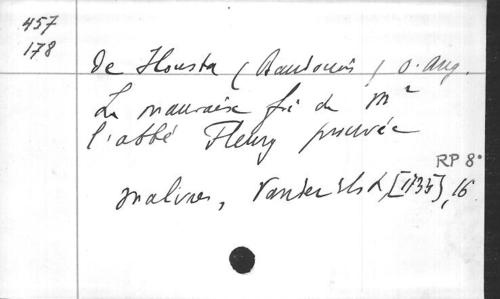 457
178
de Housta (Baudouin) o. Aug.
La mauvaise foi de Mr
l'abbé Fleury prouvée
RP 8°
Malines, Vander Elst, [1733], 16